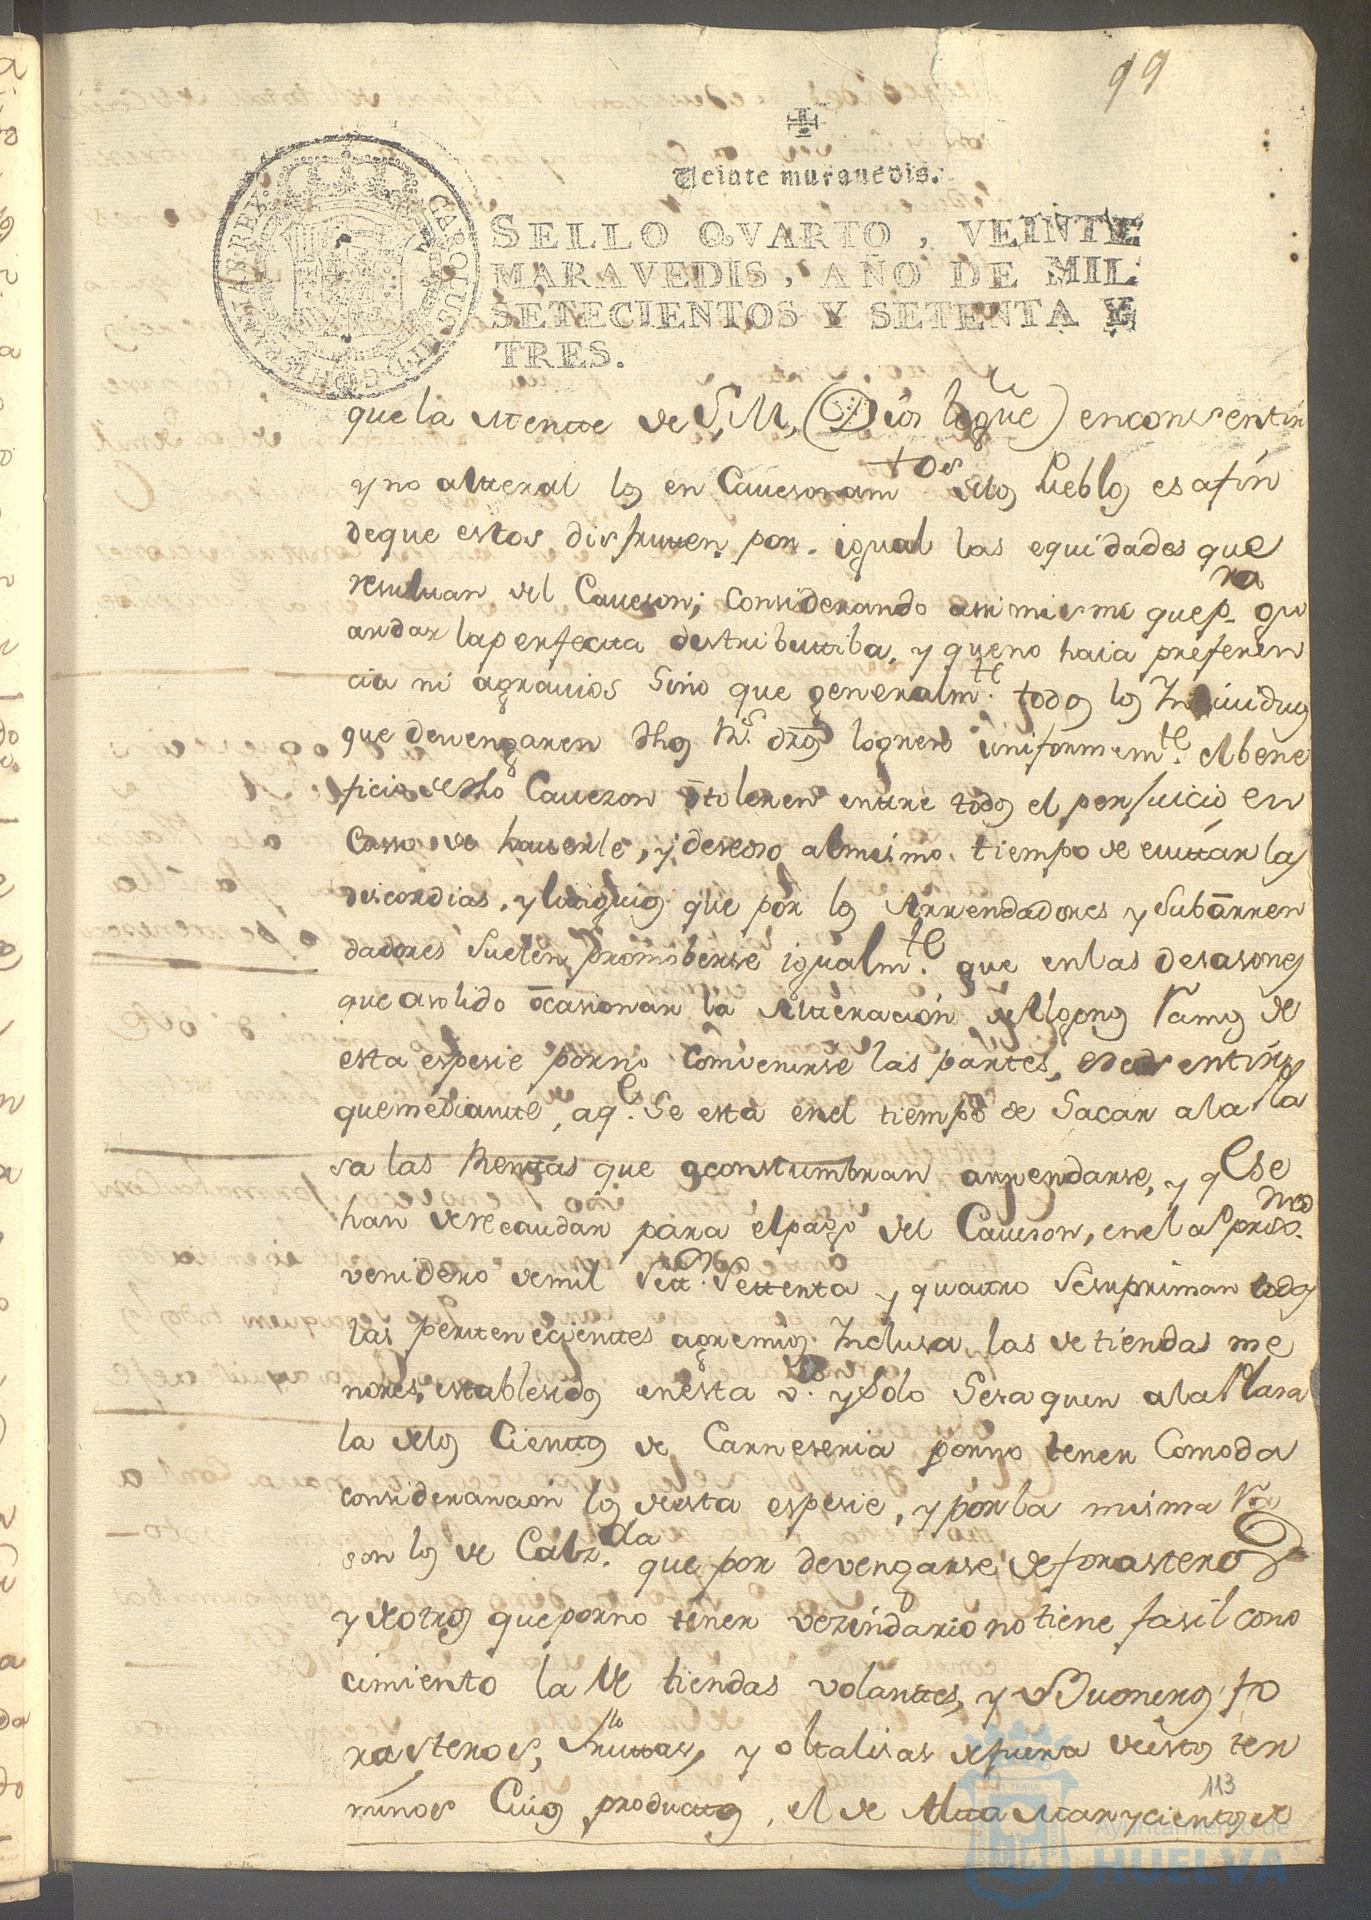 99
Veinte maravedis.
SELLO QVARTO, VEINTE
MARAVEDIS, AÑO DE MIL
SETECIENTOS Y SETENTA Y
TRES.
que la mente de S. M. (Dios legue) en consentir
y no alteral los en Cavesonamtos de los Pueblos es afin
deque estos disfruten por igual las equidades que
resultan del Caveson; Considerando assi mismo que pra gu
ardar la perfecta destributtiba, y queno haia preferen
cia ni agravios Sino que generalmte todos los Individuos
que devengaren dhos Rs. dros logren uniformemte el bene
ficio de dho Cavezon o toleren entre todos el perjuicio en
Casso de haverle, y deseoso al mismo tiempo de evittar las
discordias, y littigios que por los Arrendadores y subarren
dadores suelen promoberse igualmte que en las desasones
que a solido ocasionar la Altterasion de Algunos Ramos de
esta espesie por no comvenirse las partes,
que mediante, aqe Se está en el tiempo de Sacar a la Pla
sa las Rentas que acostumbran arrendarse, y qe se
han de recaudar para el pago del Caveson, en el a
venidero de mil Settos Settenta y quattro se supriman todas
las pertenecientes a gremios Inclusa las de tiendas me
nores, establesidos en esta va. y Solo Se saquen a la Plasa
la de los Cienttos de Carneseria por no tener Comoda
considerancion los de esta espesie, y por la misma Ra
son los de Calz.da que por devengarse de forasteros
y de otros que por no tener vezindario no tiene fasil cono
cimiento la de tiendas volantes, y Buoneros fo
rasteros, Fruttas, y oltalisas de fuera de estos ter
minos Cuios productos, el de Alta Mar y cientos de
113
Ayuntamiento de
HUELVA